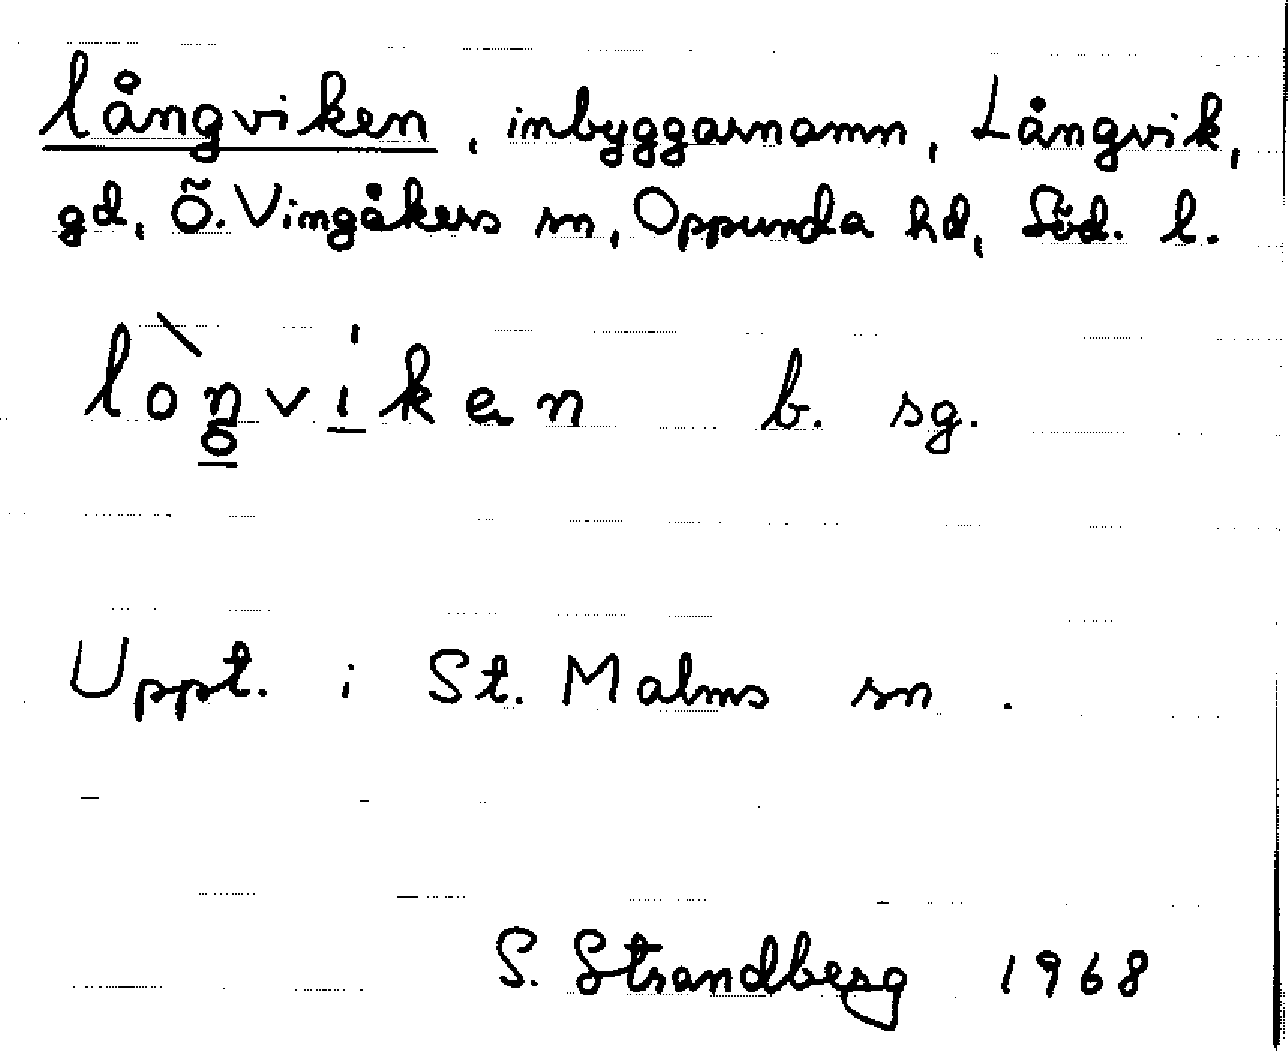 långviken, inbyggarnamn, Långvik,
gd, Ö. Vingåkers sn, Oppunda hd, Söd. l.
lòŋvikən b. sg.
Uppt. i St. Malms sn.
S. Strandberg 1968